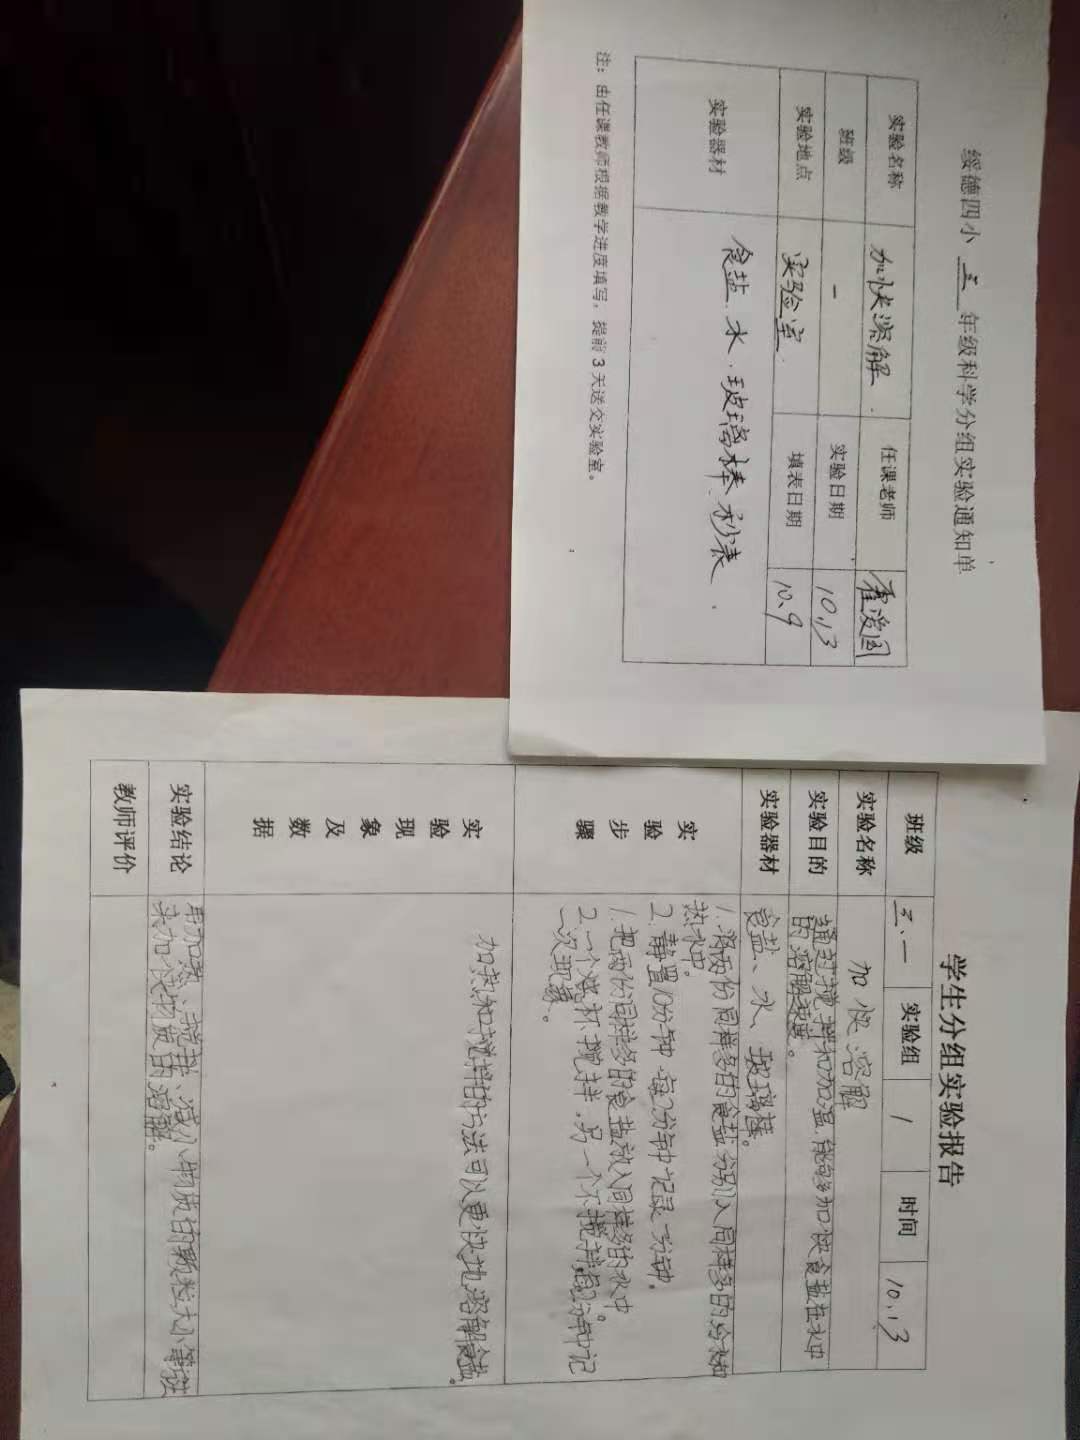 绥德四小 三 年级科学分组实验通知单
实验名称 加快溶解 任课老师 霍爱国
班级 一 实验日期 10.13
实验地点 实验室 填表日期 10.9
实验器材 食盐、水、玻璃棒、秒表
注：由任课教师根据教学进度填写，提前3天送交实验室。
学生分组实验报告
班级 三、一 实验组 1 时间 10.13
实验名称 加快溶解
实验目的 通过搅拌和加温,能够加快食盐在水中
的溶解速度。
实验器材 食盐、水、玻璃棒。
实验步骤
1.将两份同样多的食盐分别 入同样多的冷水和
热水中。
2.静置10分钟.每2分钟记录一分钟.
1.把两份同样多的食盐放入同样多的水中。
2.一个烧杯搅拌.另一个不搅拌.每2分钟记
一次现象。
实验现象及数据
加热和搅拌的方法可以更快地溶解食盐。
实验结论 用加热、搅拌、减小物质的颗粒大小等方法
来加快物质的溶解。
教师评价